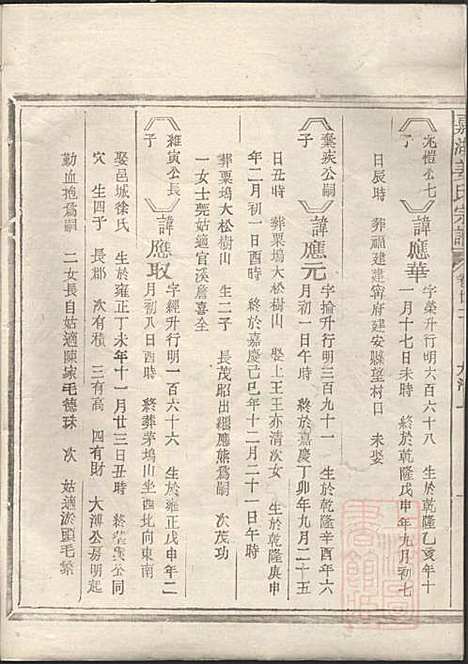 嘉湖姜氏宗譜
光愷公七
子
諱應華
字榮升行明大百六十八　生於乾隆乙亥年十
一月十七日未時　終於乾隆戊申年九月初七
日辰時　葬福建建甯府建安縣望村口　未娶
棄疾公嗣
子
諱應元
字掄升行明三百九十一　生於乾隆辛酉年六
月初一日午時　終於嘉慶丁卯年九月二十五
日丑時　葬粟塢大松樹山　娶上王王亦清次女　生於乾隆庚申
年二月初一日酉時　終於嘉慶己巳年十二月二十一日午時
葬粟塢大松樹山　生二子　長茂昭出繼應熊爲嗣　次茂功
一女士堯姑適官溪詹喜全
維寅公長
子
諱應取
字經升行明一百六十六　生於雍正戊申年二
月初八日酉時　終　葬茅塢山坐西北向東南
娶邑城徐氏　生於雍正丁未年十一月廿三日丑時　終　葬
穴　生四子　長郡　次有積　三有高　四有財　大溥公房明起
勤血抱爲嗣　二女長自姑適陳塚毛德珠　次　姑適淤頭毛